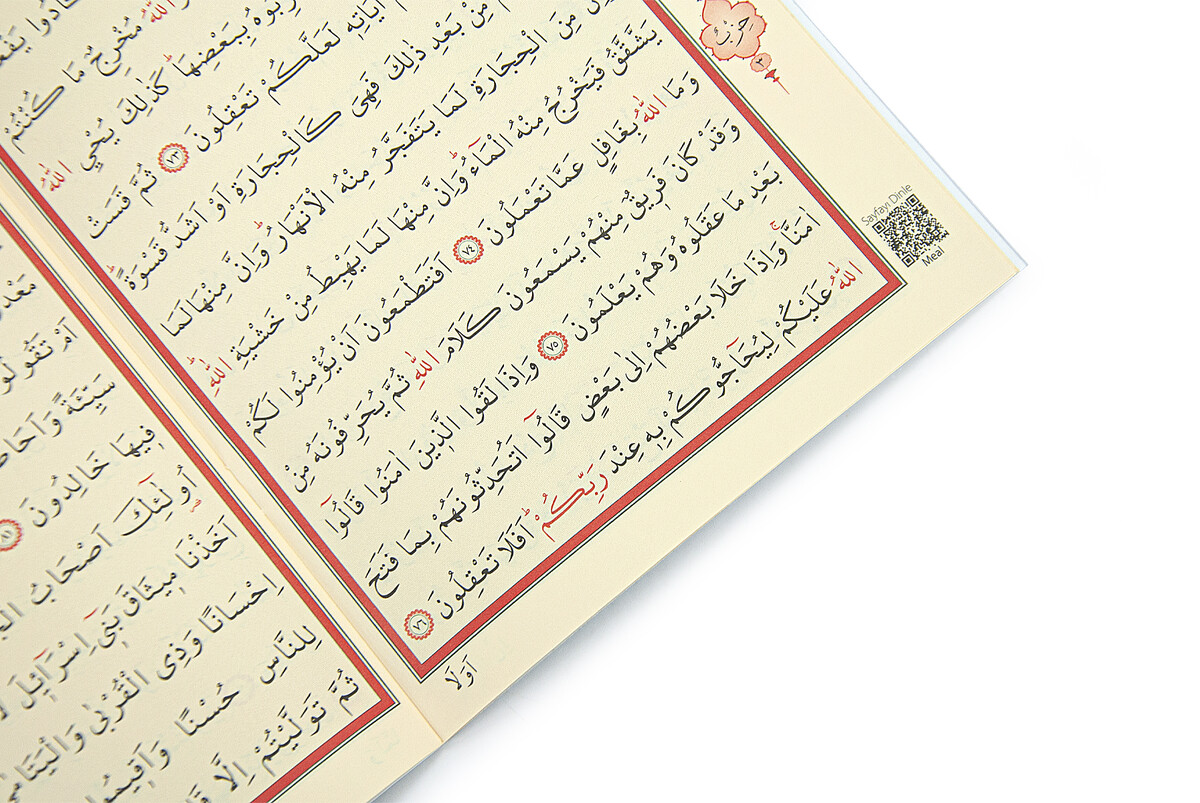 اللّٰهُ مُخْرِجٌ مَا كُنْتُمْ
بِبَعْضِهَاۜ كَذٰلِكَ يُحْيِي اللّٰهُ
اٰيَاتِه۪ لَعَلَّكُمْ تَعْقِلُونَ ٧٣ ثُمَّ قَسَتْ
مِنْ بَعْدِ ذٰلِكَ فَهِيَ كَالْحِجَارَةِ اَوْ اَشَدُّ قَسْوَةًۜ
مِنَ الْحِجَارَةِ لَمَا يَتَفَجَّرُ مِنْهُ الْاَنْهَارُۜ وَاِنَّ مِنْهَا لَمَا
يَشَّقَّقُ فَيَخْرُجُ مِنْهُ الْمَٓاءُۜ وَاِنَّ مِنْهَا لَمَا يَهْبِطُ مِنْ خَشْيَةِ اللّٰهِۜ
وَمَا اللّٰهُ بِغَافِلٍ عَمَّا تَعْمَلُونَ ٧٤ اَفَتَطْمَعُونَ اَنْ يُؤْمِنُوا لَكُمْ
وَقَدْ كَانَ فَر۪يقٌ مِنْهُمْ يَسْمَعُونَ كَلَامَ اللّٰهِ ثُمَّ يُحَرِّفُونَهُ مِنْ
بَعْدِ مَا عَقَلُوهُ وَهُمْ يَعْلَمُونَ ٧٥ وَاِذَا لَقُوا الَّذ۪ينَ اٰمَنُوا قَالُٓوا
اٰمَنَّاۚ وَاِذَا خَلَا بَعْضُهُمْ اِلٰى بَعْضٍ قَالُٓوا اَتُحَدِّثُونَهُمْ بِمَا فَتَحَ
اللّٰهُ عَلَيْكُمْ لِيُحَٓاجُّوكُمْ بِه۪ عِنْدَ رَبِّكُمْۜ اَفَلَا تَعْقِلُونَ ٧٦
اَوَلَا
حِزْبْ
٣
Sayfayı Dinle
Meal
اَمْ تَقُولُونَ
سَيِّئَةً وَاَحَاطَتْ
ف۪يهَا خَالِدُونَ ٨١
اُو۬لٰٓئِكَ اَصْحَابُ
اَخَذْنَا م۪يثَاقَ بَن۪ٓي اِسْرَٓائ۪لَ
اِحْسَانًا وَذِي الْقُرْبٰى وَالْيَتَامٰى
لِلنَّاسِ حُسْنًا وَاَق۪يمُوا
ثُمَّ تَوَلَّيْتُمْ اِلَّا